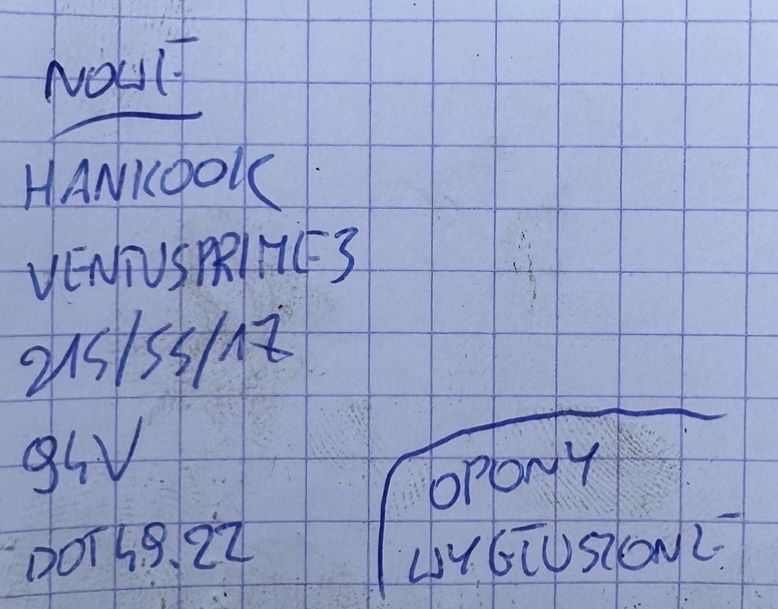 NOWE
HANKOOK
VENTUS PRIME 3
215/55/17
94V
DOT 49.22
OPONY
WYGŁUSZONE